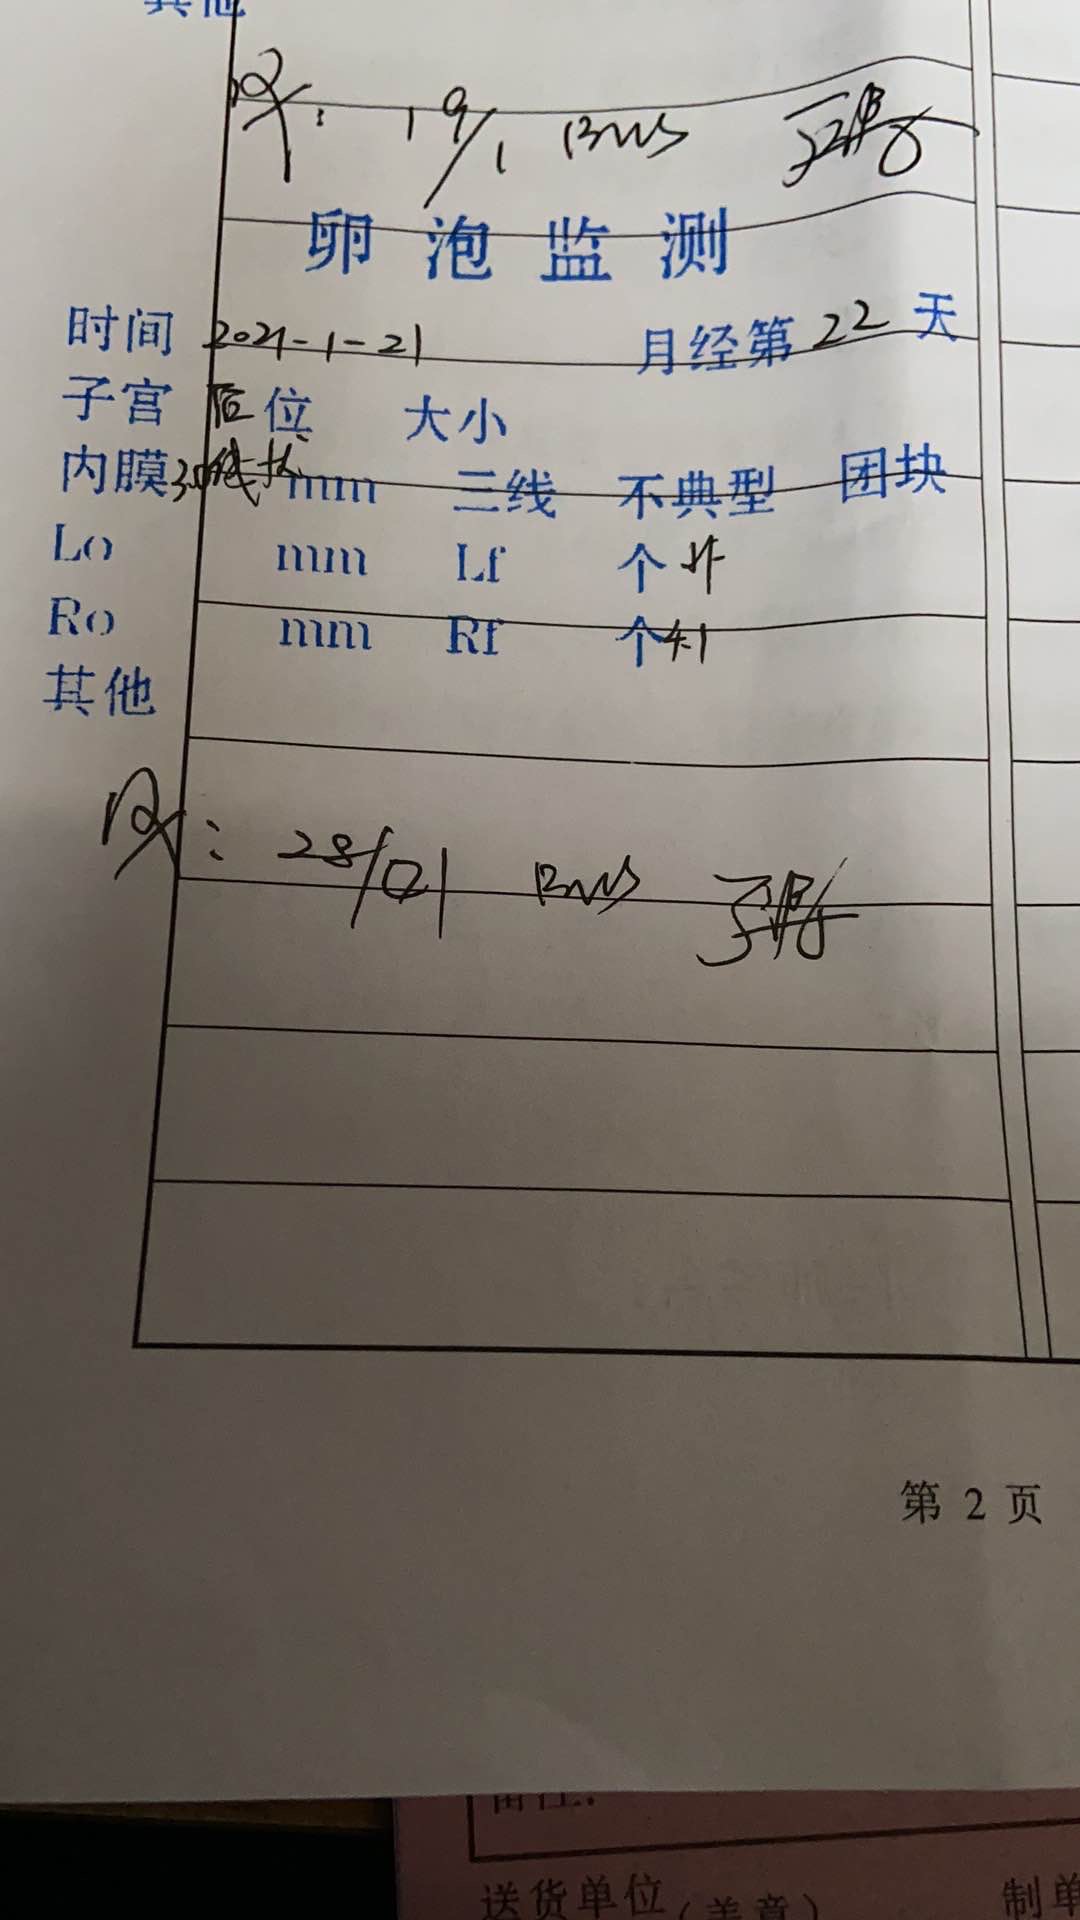 其他
Rx: 19/1 BUS
卵泡监测
时间 2021-1-21 月经第 22 天
子宫 后位 大小
内膜 mm 三线 不典型 团块
Lo mm Lf 个
Ro mm Rf 个 4.1
其他
Rx: 28/01 BUS
第 2 页
备注:
送货单位(盖章) 制单